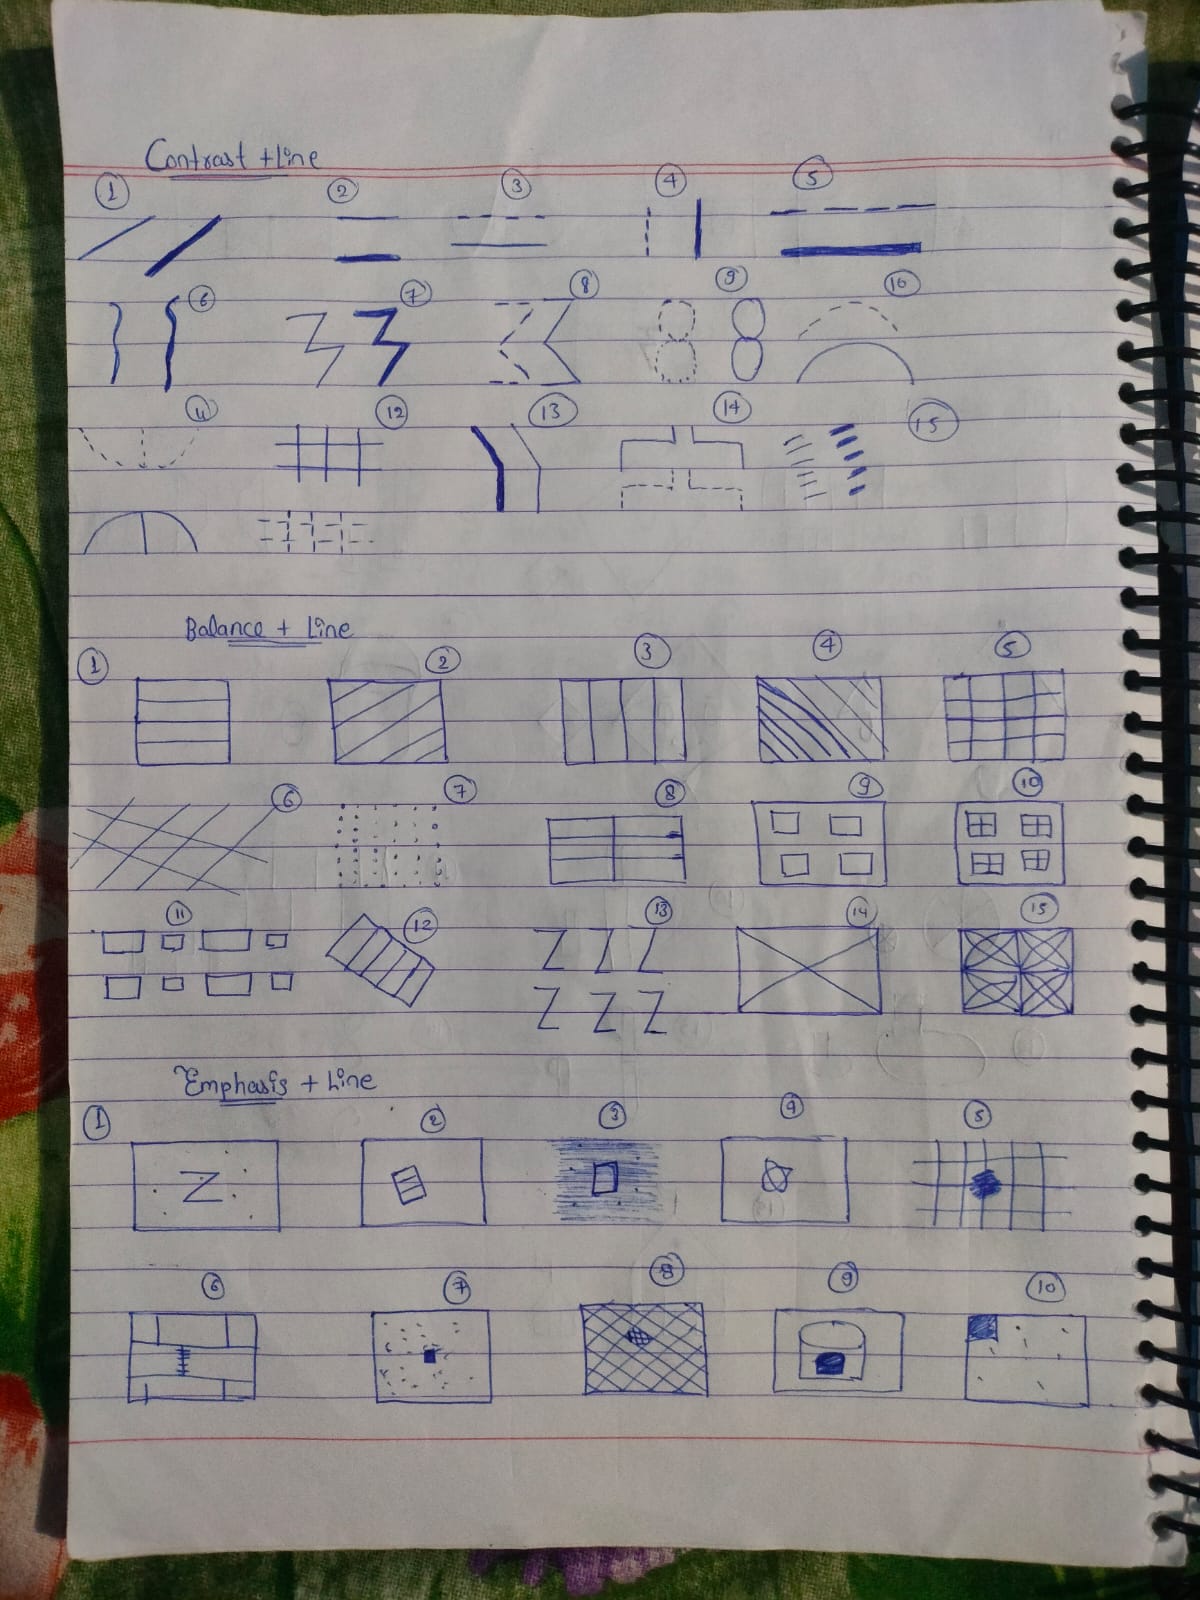 Contrast + Line
1 2 3 4 5
6 7 8 9 10
11 12 13 14 15
Balance + Line
1 2 3 4 5
6 7 8 9 10
11 12 13 14 15
Emphasis + Line
1 2 3 4 5
6 7 8 9 10